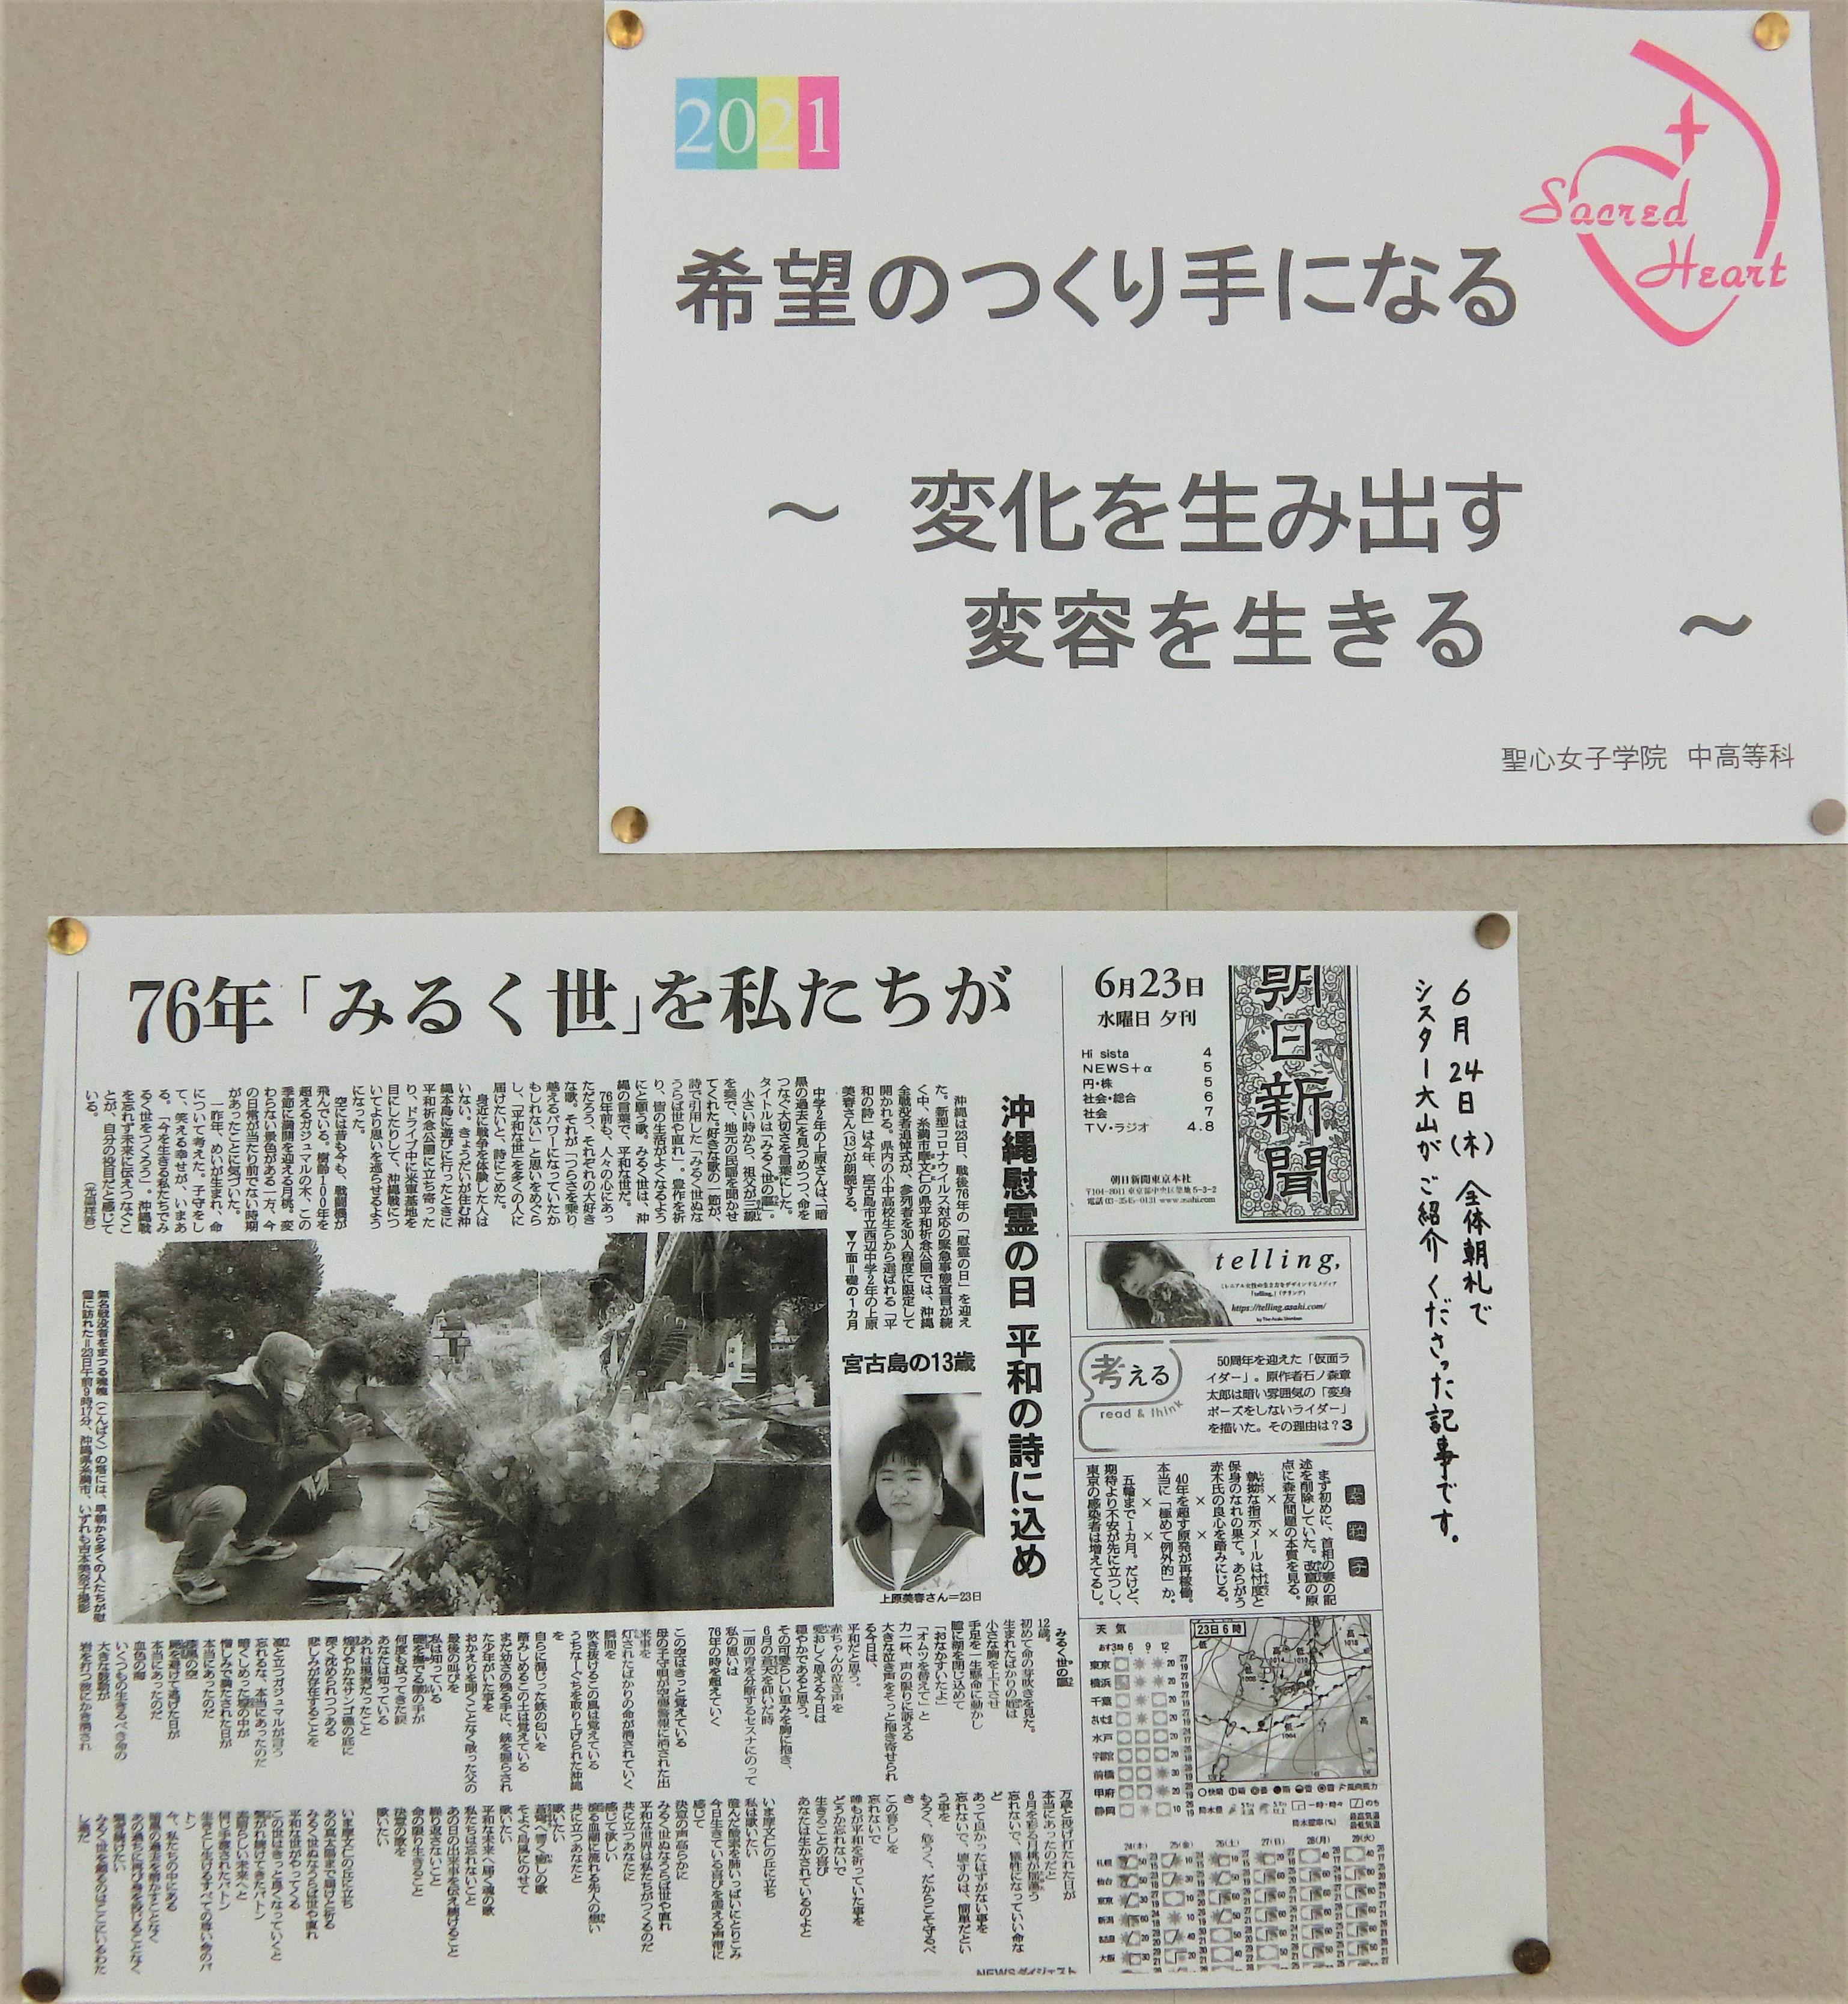 2021
Sacred
Heart
希望のつくり手になる
～ 変化を生み出す
変容を生きる ～
聖心女子学院 中高等科
6月24日(木) 全体朝礼で
シスター大山がご紹介くださった記事です。
朝日新聞
6月23日
水曜日 夕刊
Hi sista 4
NEWS+α 5
円・株 5
社会・総合 6
社会 7
TV・ラジオ 4.8
朝日新聞東京本社
〒104-8011 東京都中央区築地5-3-2
電話 03-3545-0131 www.asahi.com
telling,
https://telling.asahi.com/
考える
read & think
50周年を迎えた「仮面ラ
イダー」。原作者石ノ森章
太郎は暗い雰囲気の「変身
ポーズをしないライダー」
を描いた。その理由は？3
素粒子
まず初めに、首相の妻の記
述を削除していた。改竄の原
点に森友問題の本質を見る。
× ×
執拗な指示メールは忖度と
保身のなれの果て。あらがう
赤木氏の良心を踏みにじる。
× ×
40年を超す原発が再稼働。
本当に「極めて例外的」か。
× ×
五輪まで1カ月。だけど、
期待より不安が先に立つし、
東京の感染者は増えてるし。
天気
23日6時
東京
横浜
千葉
さいたま
水戸
宇都宮
前橋
甲府
静岡
24(木) 25(金) 26(土) 27(日) 28(月) 29(火)
札幌
仙台
東京
新潟
名古屋
大阪
76年「みるく世」を私たちが
沖縄慰霊の日 平和の詩に込め
沖縄は23日、戦後76年の「慰霊の日」を迎え
た。新型コロナウイルス対応の緊急事態宣言が続
く中、糸満市摩文仁の県平和祈念公園では、沖縄
全戦没者追悼式が、参列者を30人程度に限定して
開かれる。県内の小中高校生らから選ばれる「平
和の詩」は今年、宮古島市立西辺中学2年の上原
美春さん(13)が朗読する。 ▼7面＝礎の1カ月
宮古島の13歳
上原美春さん＝23日
中学2年の上原さんは、「暗
黒の過去」を見つめつつ、命を
つなぐ大切さを言葉にした。
タイトルは「みるく世の謳」。
小さい時から、祖父が三線
を奏で、地元の民謡を聞かせ
てくれた。好きな歌の一節が、
詩で引用した「みるく世ぬな
うらば世や直れ」。豊作を祈
り、皆の生活がよくなるよう
にと願う歌。みるく世は、沖
縄の言葉で、平和な世だ。
76年前も、人々の心にあっ
ただろう、それぞれの大好き
な歌。それが「つらさを乗り
越えるパワーになっていたか
もしれない」と思いをめぐら
し、「平和な世」を多くの人に
届けたいと、詩にこめた。
身近に戦争を体験した人は
いない。きょうだいが住む沖
縄本島に遊びに行ったときに
平和祈念公園に立ち寄った
り、ドライブ中に米軍基地を
目にしたりして、沖縄戦につ
いてより思いを巡らせるよう
になった。
空には昔も今も、戦闘機が
飛んでいる。樹齢100年を
超えるガジュマルの木、この
季節に満開を迎える月桃。変
わらない景色がある一方、今
の日常が当たり前でない時期
があったことに気づいた。
一昨年、めいが生まれ、命
について考えた。子守をし
て、笑える幸せが、いまあ
る。「今を生きる私たちでみ
るく世をつくろう」。沖縄戦
を忘れず未来に伝えつなぐこ
とが、自分の役目だと感じて
いる。
無名戦没者をまつる魂魄(こんぱく)の塔には、早朝から多くの人たちが慰
霊に訪れた＝23日午前9時17分、沖縄県糸満市、いずれも吉本美奈子撮影
みるく世の謳
12歳。
初めて命の芽吹きを見た。
生まれたばかりの姪は
小さな胸を上下させ
手足を一生懸命に動かし
瞳に湖を閉じ込めて
「おなかすいたよ」
「オムツを替えて」と
力一杯、声の限りに訴える
大きな泣き声をそっと抱き寄せられ
る今日は、
平和だと思う。
赤ちゃんの泣き声を
愛おしく思える今日は
穏やかであると思う。
その可愛らしい重みを胸に抱き、
6月の蒼天を仰いだ時
一面の青を分断するセスナにのって
私の思いは
76年の時を超えていく
この空はきっと覚えている
母の子守唄が空襲警報に消された出
来事を
灯されたばかりの命が消されていく
瞬間を
吹き抜けるこの風は覚えている
うちなーぐちを取り上げられた沖縄
を
自らに混じった鉄の匂いを
踏みしめるこの土は覚えている
まだ幼さの残る手に、銃を握らされ
た少年がいた事を
おかえりを聞くことなく散った父の
最後の叫びを
私は知っている
礎を撫でる皺の手が
何度も拭ってきた涙
あなたは知っている
あれは現実だったこと
煌びやかなサンゴ礁の底に
深く沈められつつある
悲しみが存在することを
凛と立つガジュマルが言う
忘れるな、本当にあったのだ
暗くしめった壕の中が
憎しみで満たされた日が
本当にあったのだ
漆黒の空
屍を避けて逃げた日が
本当にあったのだ
血色の海
いくつもの生きるべき命の
大きな鼓動が
岩を打つ波にかき消され
万歳と投げ打たれた日が
本当にあったのだと
6月を彩る月桃が揺蕩う
忘れないで、犠牲になっていい命な
あって良かったはずがない事を
忘れないで、壊すのは、簡単だとい
う事を
もろく、危うく、だからこそ守るべ
き
この暮らしを
忘れないで
誰もが平和を祈っていた事を
どうか忘れないで
生きることの喜び
あなたは生かされているのよと
いま摩文仁の丘に立ち
私は歌いたい
澄んだ酸素を肺いっぱいにとりこみ
今日生きている喜びを震える声帯に
感じて
決意の声高らかに
みるく世ぬなうらば世や直れ
平和な世界は私たちがつくるのだ
共に立つあなたに
感じて欲しい
滾る血潮に流れる先人の想い
共に立つあなたと
歌いたい
蒼穹へ響く癒しの歌
そよぐ島風にのせて
歌いたい
平和な未来へ届く魂の歌
私たちは忘れないこと
あの日の出来事を伝え続けること
繰り返さないこと
命の限り生きること
決意の歌を
歌いたい
いま摩文仁の丘に立ち
あの真太陽まで届けと祈る
みるく世ぬなうらば世や直れ
平和な世がやってくる
この世はきっと良くなっていくと
繋がれ続けてきたバトン
素晴らしい未来へと
信じ手渡されたバトン
生きとし生けるすべての尊い命のバ
トン
今、私たちの中にある
暗黒の過去を溶かすことなく
あの過ちに再び身を投じることなく
繋ぎ続けたい
みるく世を創るのはここにいるわた
し達だ
NEWSダイジェスト